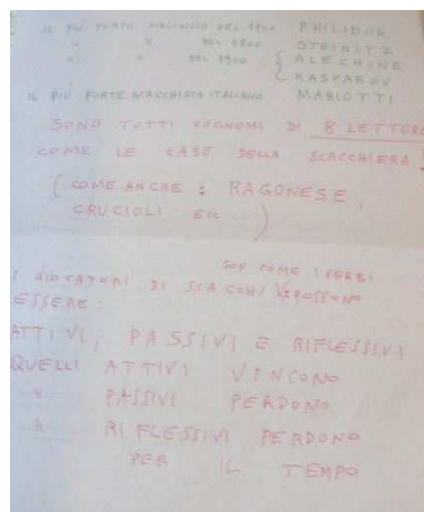 IL PIÙ FORTE SCACCHISTA DEL 1700 PHILIDOR
" " DEL 1800 STEINITZ
" " DEL 1900 { ALECHINE
{ KASPAROV
IL PIÙ FORTE SCACCHISTA ITALIANO MARIOTTI
SONO TUTTI COGNOMI DI 8 LETTERE
COME LE CASE DELLA SCACCHIERA!
(COME ANCHE: RAGONESE,
CRUCIOLI ECC...)
SON COME I VERBI
I GIOCATORI DI SCACCHI POSSONO
ESSERE:
ATTIVI, PASSIVI E RIFLESSIVI
QUELLI ATTIVI VINCONO
" PASSIVI PERDONO
" RIFLESSIVI PERDONO
PER IL TEMPO